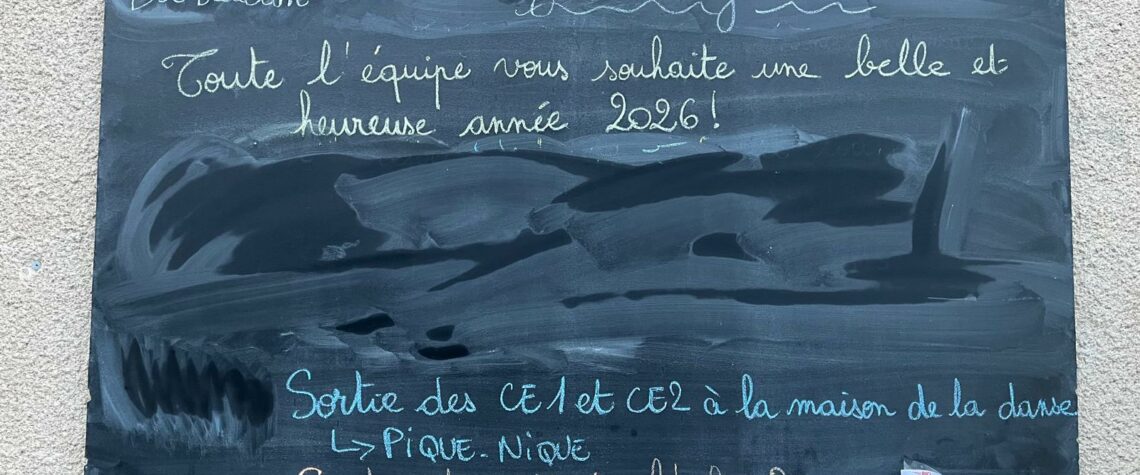 Toute l'équipe vous souhaite une belle et
heureuse année 2026!
Sortie des CE1 et CE2 à la maison de la danse
↳ PIQUE-NIQUE